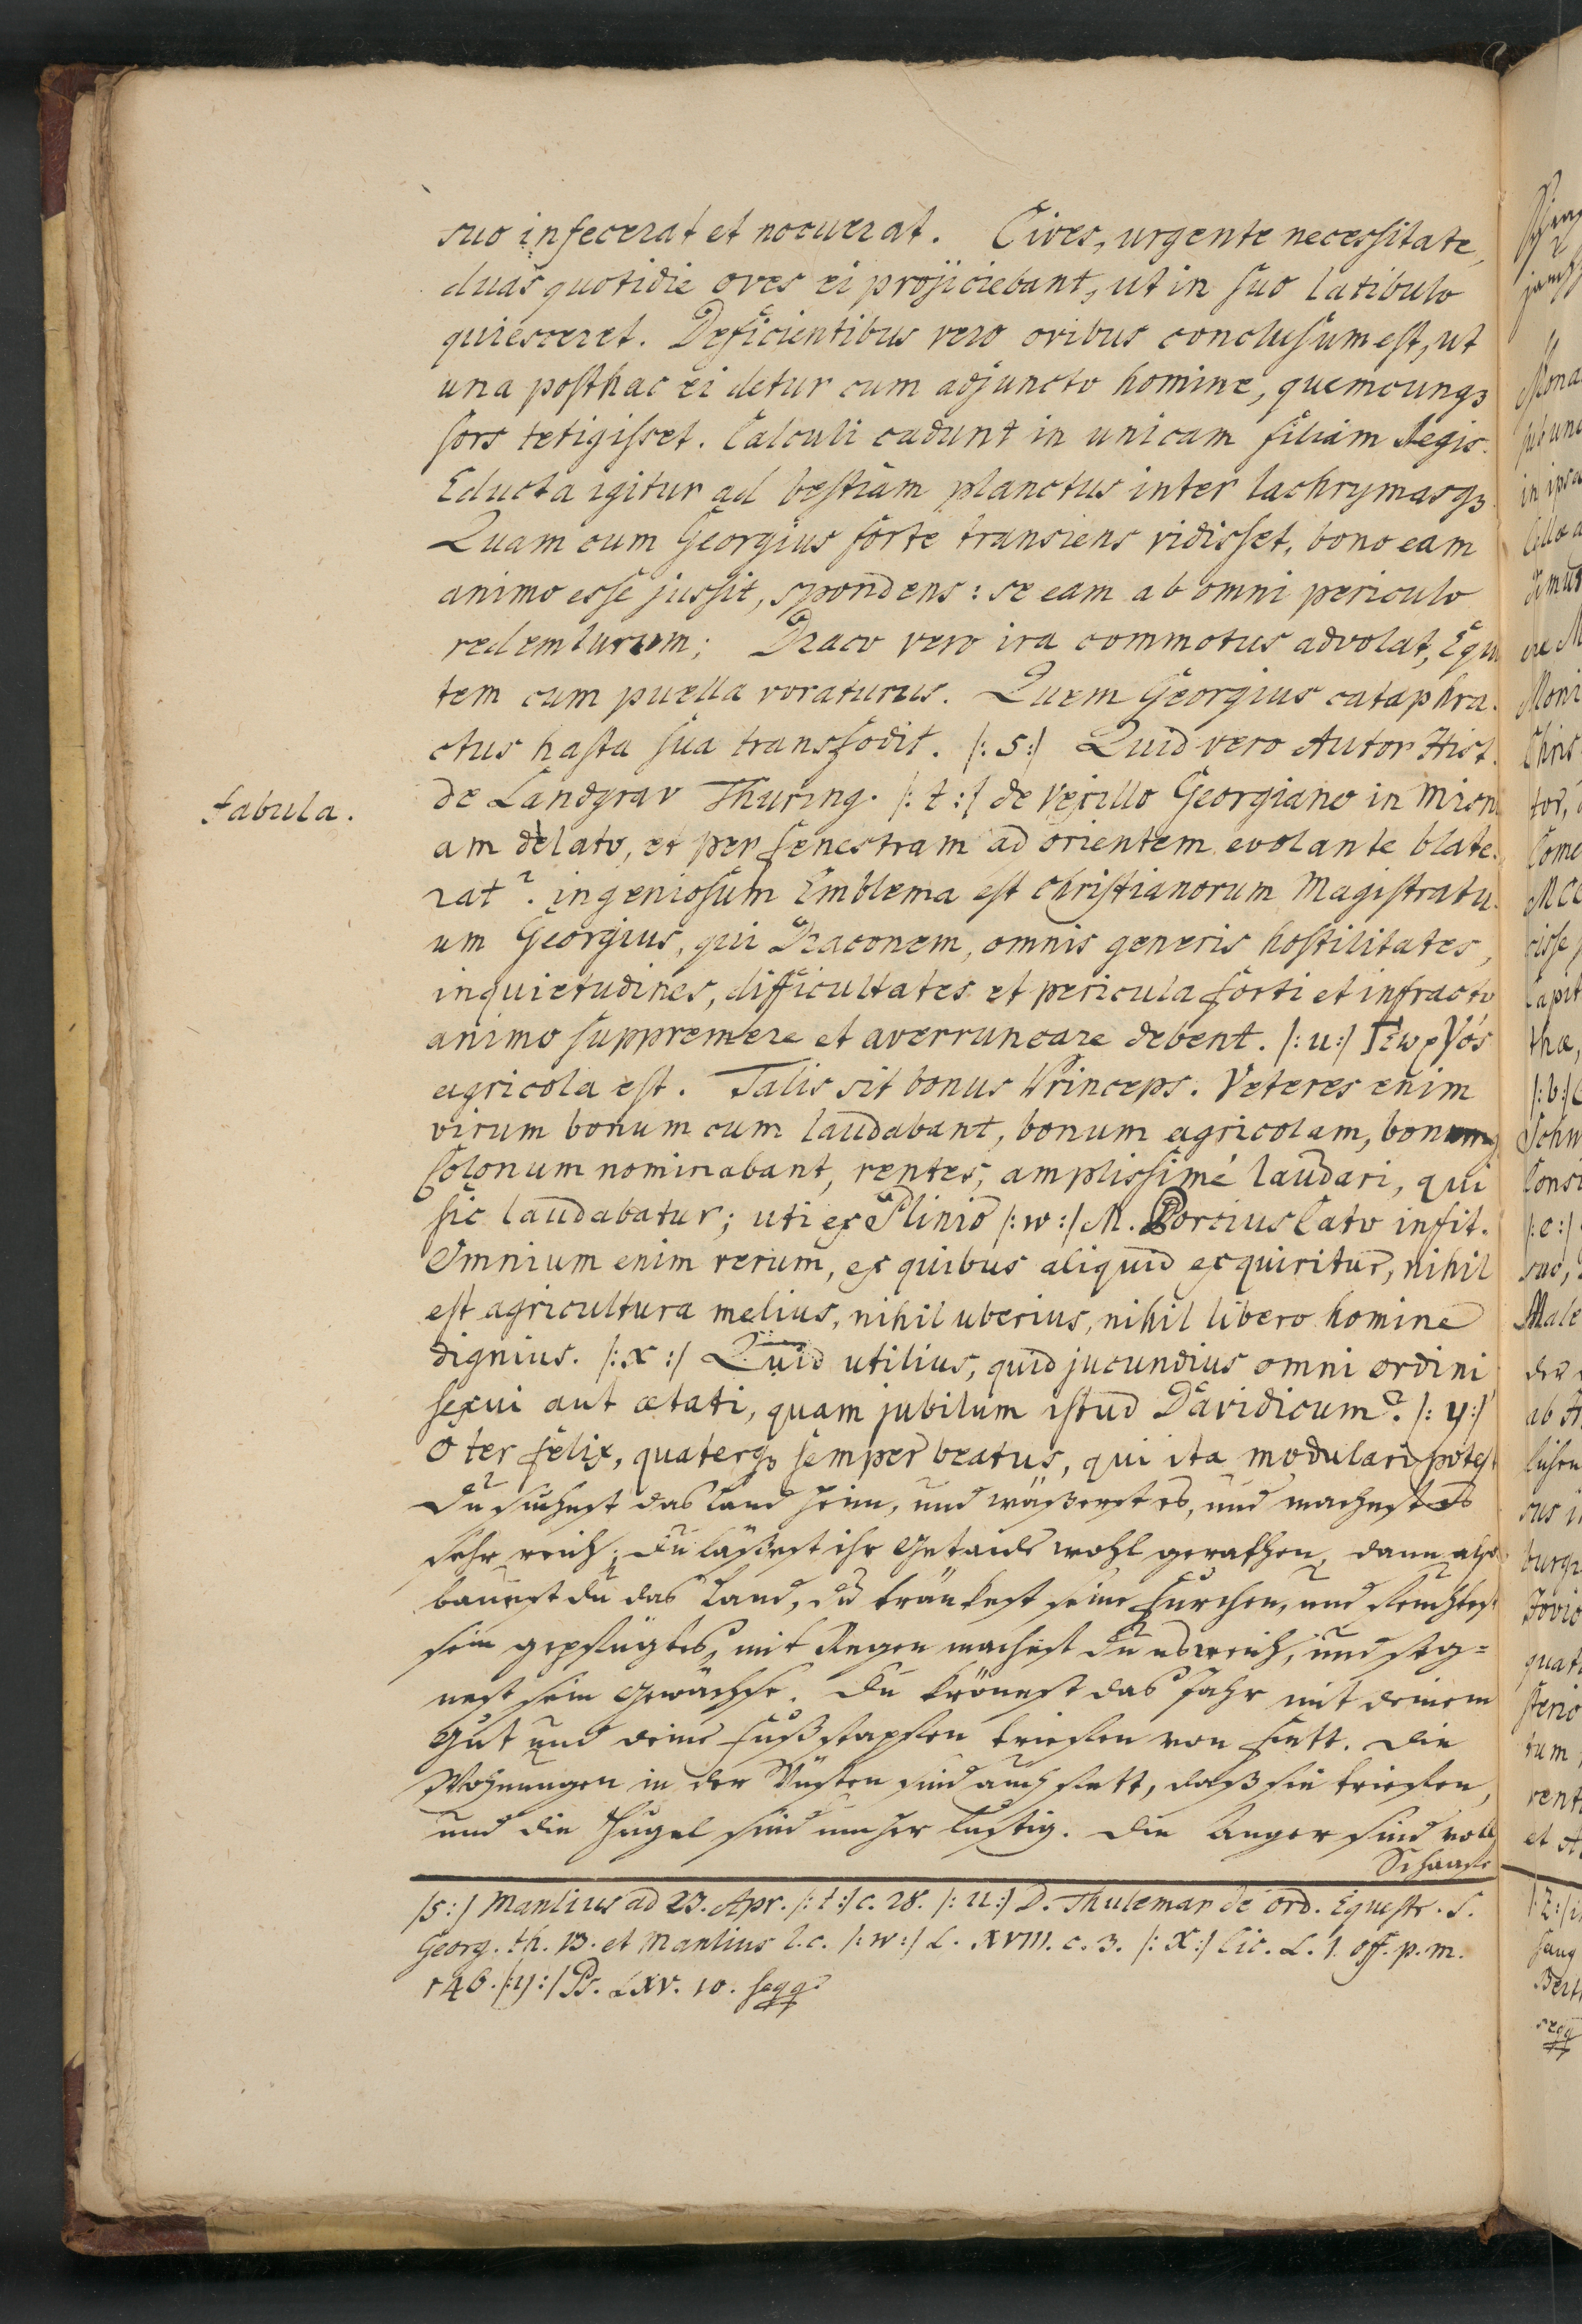 suo infecerat et nocuerat. Cives, urgente necessitate,
duas quotidie oves ei projiciebant, ut in suo latibulo
quiesceret. Deficientibus vero ovibus conclusum est, ut
una posthac ei detur cum adjuncto homine, quemcunqꝫ
sors tetigisset. Calculi cadunt in unicam filiam Regis.
Educta igitur ad bestiam planctus inter lachrymasqꝫ
Quam cum Georgius forte transiens vidisset, bono eam
animo esse jussit, spondens: se eam ab omni periculo
redemturum; Draco vero ira commotus advolat, Equi
tem cum puella voraturus. Quem Georgius cataphra-
ctus hasta sua transfodit. /: s :/ Quid vero Autor Hist.
fabula.
de Landgrav Thuring. /: t :/ de Vexillo Georgiano in Misn
am delato, et per fenestram ad orientem evolante blate-
rat? ingeniosum Emblema est christianorum Magistratu-
um Georgius, qui Draconem, omnis generis hostilitates,
inquietudines, difficultates et pericula forti et infracto
animo suppremere et averruncare debent. /: u :/ Γεωργός
agricola est. Talis sit bonus Princeps. Veteres enim
virum bonum cum laudabant, bonum agricolam, bonumqꝫ
Colonum nominabant, rentes, amplissimé laudari, qui
sic laudabatur; uti ex Plinio /: w :/ M. Porcius Cato infit.
Omnium enim rerum, ex quibus aliquid exquiritur, nihil
est agricultura melius, nihil uberius, nihil libero homine
dignius. /: x :/ Quid utilius, quid jucundius omni ordini
sexui aut ætati, quam jubilum istud Davidicum? /: y :/
O ter felix, quaterqꝫ semper beatus, qui ita modulari potest
Du suchest das Land heim, und wäßerst es, und machest es
sehr reich; du läßest ihr Getraide wohl gerathen, dann also
bauest du das Land, du tränkest seine Furchen, und feuchtest
sein gepflügtes, mit Regen machest du es weich, und seg=
nest sein Gewächse. Du krönest das Jahr mit deinem
Gut und deine Fußstapfen triefen von Fett. Die
Wohnungen in der Wüsten sind auch fett, daß sie triefen,
und die Hugel sind umher lustig. Die Anger sind voll
Schaafe
/s :/ Manlius ad 23. Apr. /: t :/ c. 28. /: u :/ D. Thulemar de ord. Equestr. S.
Georg. th. 13. et Manlius l. c. /: w :/ L. XVIII. c. 3. /: x :/ Cic. L. 1. off. p. m.
146. /: y :/ Ps. LXV. 10. seqq.